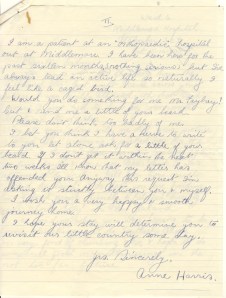 II.
I am a patient at an Orthopaedic Hospital
out at Middlemore. I have been here for the
past twelve months, nothing serious but I've
always lead an active life so naturally I
feel like a caged bird.
Would you do something for me
and send me a little of your beard
Please don't think to badly of me
I bet you think I have a nerve to write
to you, let alone ask for a little of your
beard. If I don't get it within the next
six weeks I'll know that my letter has
offended you. Anyway this request I'm
making is strictly between you & myself.
I wish you a very happy & smooth
journey home.
I hope your stay will determine you to
revisit our little country some day.
Yrs. Sincerely,
Anne Harris.